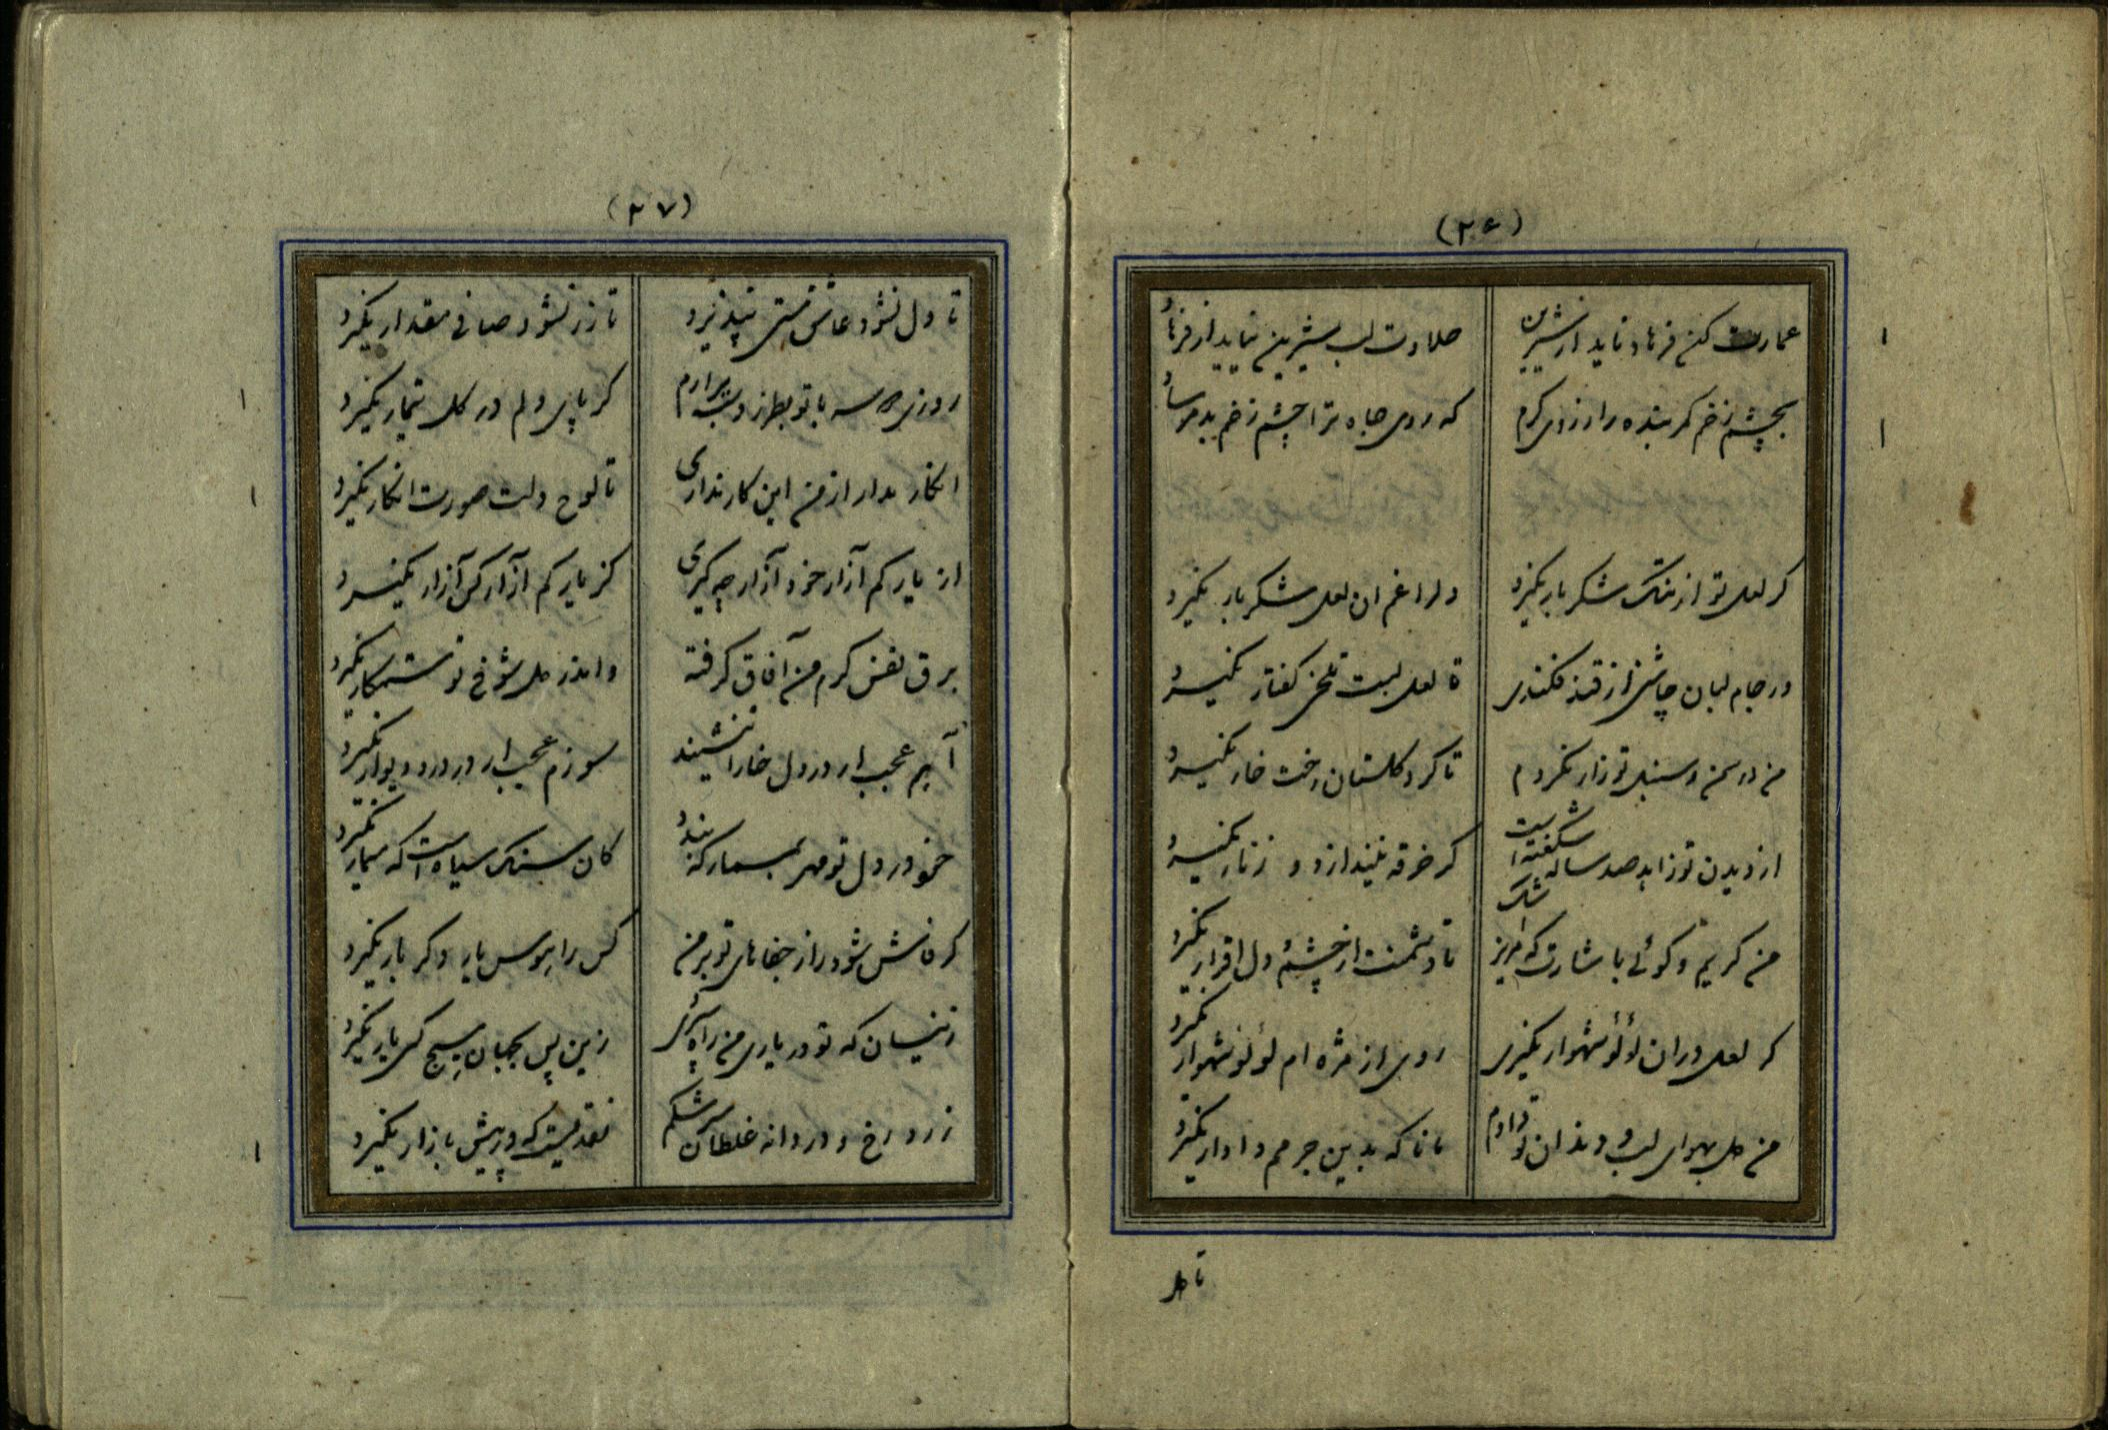 (۲۶)
عمارت کن فرهاد ناید از شیرین
حلاوت لب شیرین نیاید از فرهاد
بچشم زخم کمر بنده را از روی کرم
که روی جاه ترا چشم زخم بد مرساد
کر لعل تو از تنک شکر بار نکیرد
دلرا غم ان لعل شکر بار نکیرد
در جام لبان چاشنی از قند فکندی
تا لعل لبت تلخی کفتار نکیرد
من در سمن و سنبل تو زار نکردم
تا کرد کلستان رخت خار نکیرد
از دیدن تو زاهد صد ساله شکفتست
کر خرقه نیندازد و زنار نکیرد
من کریم و کوئی باشارت که مریز اشک
تا دشمنت از چشمهٔ دل اقرار نکیرد
کر لعل در ان لؤلؤ شهوار نکیری
روی از مژه ام لؤلؤ شهوار نکیرد
من دل بهوای لب و دندان تو دادم
تا نا که بدین جرمم دادار نکیرد
تا دل
(۲۷)
تا دل نشود عاشق مستی نپذیرد
تا زر نشود صافی مقدار نکیرد
روزی دو سه با تو بطرز و بسر ارم
کر پای دلم در کل تیمار نکیرد
انکار مدار از من این کار نداری
تا لوح دلت صورت انکار نکیرد
از یار کم آزار خود آزار چه کیری
کز یار کم آزار کس آزار نکیرد
برق نفس کرم من آفاق کرفته
واندر دل شوخ تو ستمکار نکیرد
آهم عجب ار در دل خارا ننشیند
سوزم عجب ار در در و دیوار نکیرد
خود در دل تو مهر بمسمار که بندد
کان سنک سیاه است که مسمار نکیرد
کر فاش شود راز جفاهای تو بر من
کس را هوس یار دکر بار نکیرد
زینسان که تو در یاری من راه
زین پس بجهان هیچ کس یار نکیرد
زرد رخ و دردانه غلطان سرشکم
نقدیست که در پیش بازار نکیرد